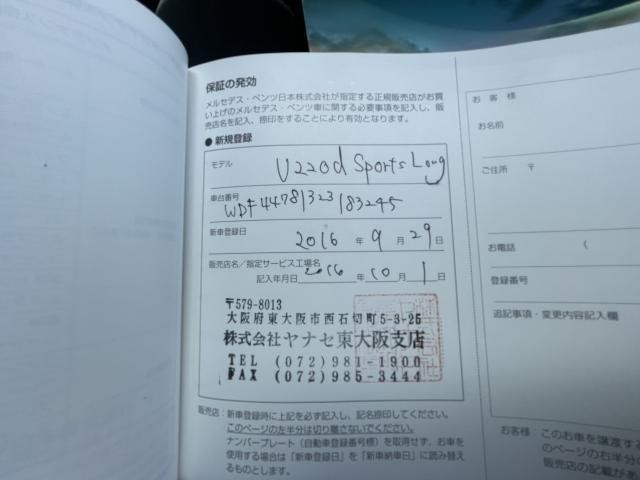 保証の発効
メルセデス・ベンツ日本株式会社が指定する正規販売店がお買
い上げのメルセデス・ベンツ車に関する必要事項を記入し、販
売店名を記入、捺印をすることにより有効となります。
● 新規登録
モデル V220d Sports Long
車台番号
WDF44781323183245
新車登録日 2016 年 9 月 29 日
販売店名/指定サービス工場名
記入年月日 2016 年 10 月 1 日
〒579-8013
大阪府東大阪市西石切町5-3-25
株式会社ヤナセ東大阪支店
TEL (072)981-1900
FAX (072)985-3444
販売店:新車登録時に上記を必ず記入し、記名捺印してください。
このページの左半分は切り離さないでください。
ナンバープレート(自動車登録番号標)を取得せず、お車を
使用する場合は「新車登録日」を「新車納車日」に読み替え
るものとします。
お 客 様
お名前
ご住所 〒
お電話 (
登録番号
追記事項・変更内容記入欄
お客様:このお車を譲渡す
このページの右半分
販売店の記載があ